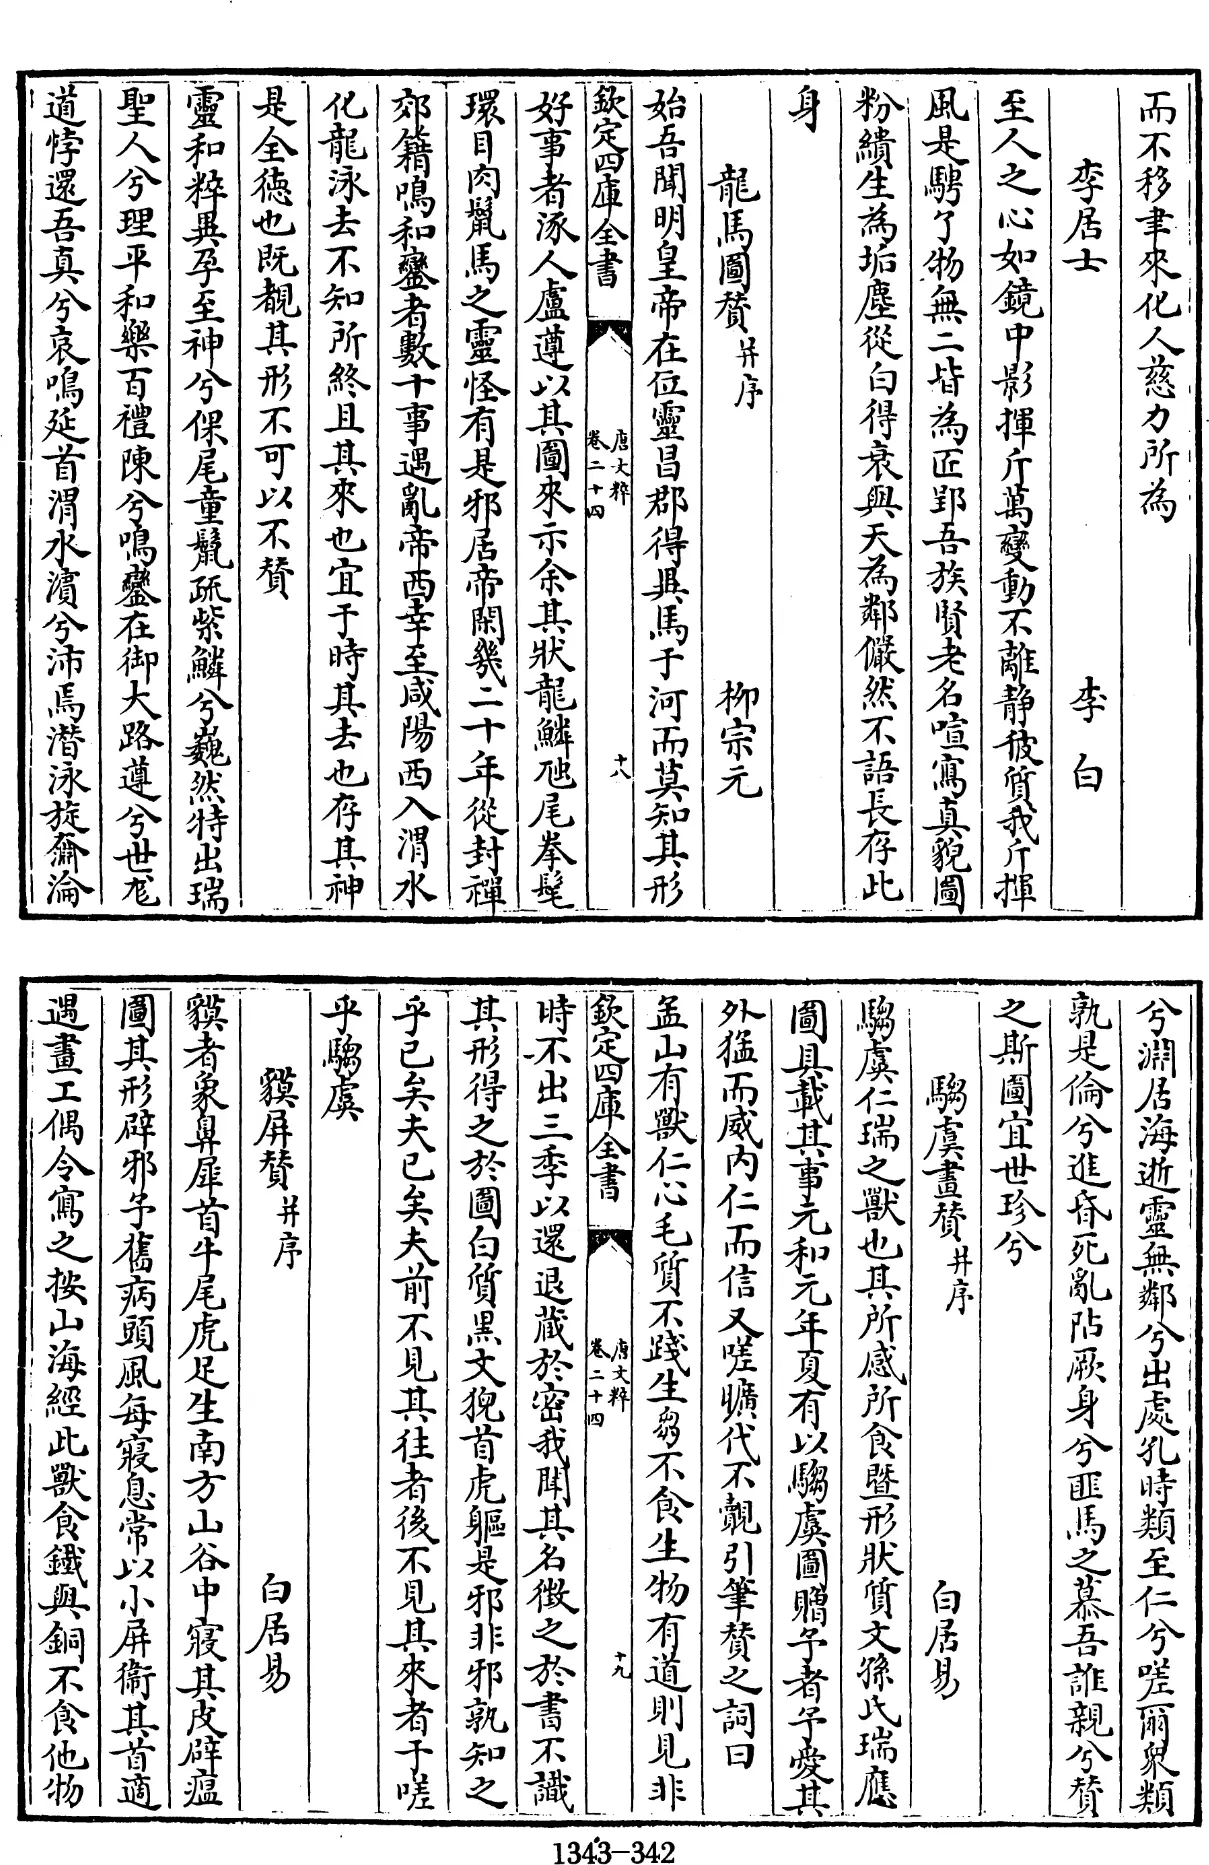 而不移聿來化人慈力所為
李居士 李白
至人之心如鏡中影揮斤萬變動不離静彼質我斤揮
風是騁了物無二皆為匠郢吾族賢老名喧寫真貌圖
粉繢生為垢塵從白得衰與天為鄰儼然不語長存此
身
龍馬圖賛并序 柳宗元
始吾聞明皇帝在位靈昌郡得異馬于河而莫知其形
欽定四庫全書 唐文粹 卷二十四 十八
好事者涿人盧遵以其圖來示余其狀龍鱗虺尾拳髦
環目肉鬣馬之靈怪有是邪居帝閑幾二十年從封禪
郊籍鳴和鑾者數十事遇亂帝西幸至咸陽西入渭水
化龍泳去不知所終且其來也宜于時其去也存其神
是全德也既覩其形不可以不賛
靈和粹異孕至神兮倮尾童鬣疏紫鱗兮巍然特出瑞
聖人兮理平和樂百禮陳兮鳴鑾在御大路遵兮世尨
道悖還吾真兮哀鳴延首渭水濱兮沛焉潛泳旋齋淪
兮淵居海逝靈無鄰兮出處孔時類至仁兮嗟爾衆類
孰是倫兮進昏死亂阽厥身兮匪馬之慕吾誰親兮賛
之斯圖宜世珍兮
騶虞畫賛并序 白居易
騶虞仁瑞之獸也其所感所食暨形狀質文孫氏瑞應
圖具載其事元和元年夏有以騶虞圖贈予者予愛其
外猛而威内仁而信又嗟曠代不覿引筆賛之詞曰
孟山有獸仁心毛質不踐生芻不食生物有道則見非
欽定四庫全書 唐文粹 卷二十四 十九
時不出三季以還退藏於密我聞其名徴之於書不識
其形得之於圖白質黑文猊首虎軀是邪非邪孰知之
乎已矣夫已矣夫前不見其往者後不見其來者于嗟
乎騶虞
貘屏賛并序 白居易
貘者象鼻犀首牛尾虎足生南方山谷中寢其皮辟瘟
圖其形辟邪予舊病頭風每寢息常以小屏衞其首適
遇畫工偶令寫之按山海經此獸食鐵與銅不食他物
1343-342